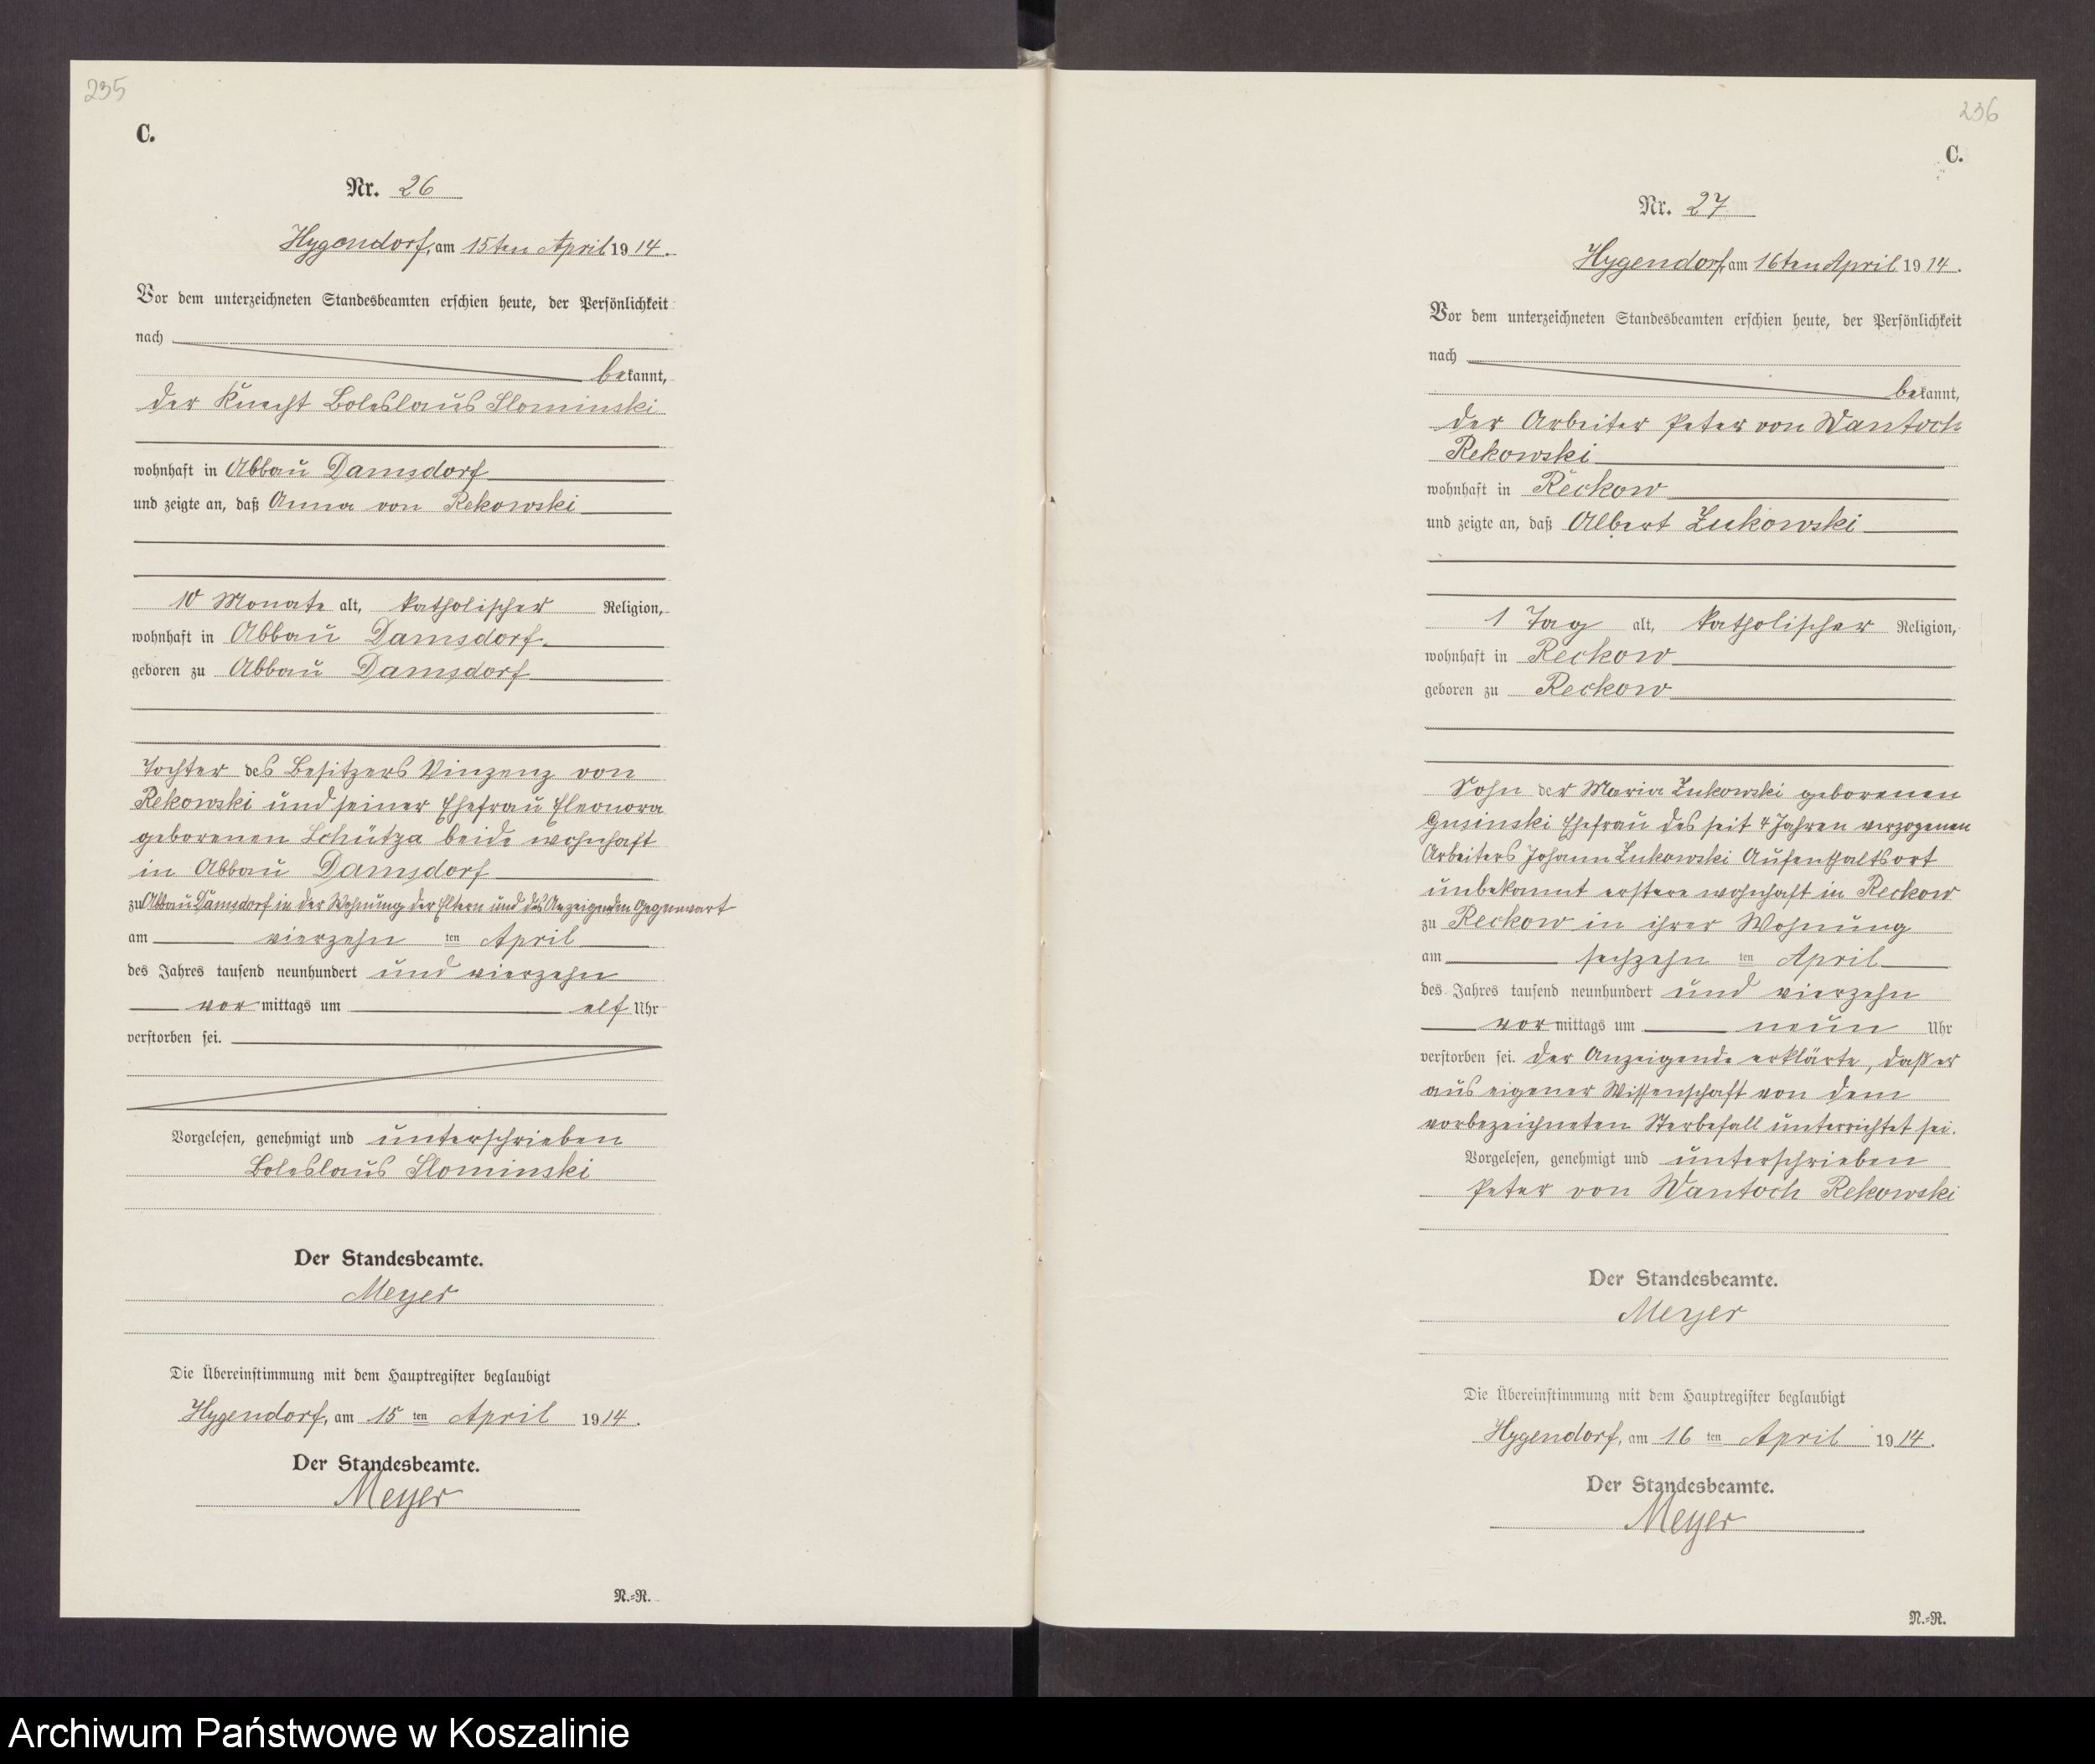 235
C.
Nr. 26
Hygendorf, am 15ten April 1914.
Vor dem unterzeichneten Standesbeamten erschien heute, der Persönlichkeit
nach
bekannt,
der Knecht Boleslaus Slominski
wohnhaft in Abbau Damsdorf
und zeigte an, daß Anna von Rekowski
10 Monate alt, katholischer Religion,
wohnhaft in Abbau Damsdorf.
geboren zu Abbau Damsdorf
Tochter des Besitzers Vinzenz von
Rekowski und seiner Ehefrau Eleonora
geborenen Schütza beide wohnhaft
in Abbau Damsdorf
zu Abbau Damsdorf in der Wohnung der Eltern und des Anzeigenden Gegenwart
am vierzehn ten April
des Jahres tausend neunhundert und vierzehn
vor mittags um elf Uhr
verstorben sei.
Vorgelesen, genehmigt und unterschrieben
Boleslaus Slominski
Der Standesbeamte.
Meyer
Die Übereinstimmung mit dem Hauptregister beglaubigt
Hygendorf, am 15 ten April 1914.
Der Standesbeamte.
Meyer
N.-R.
236
C.
Nr. 27
Hygendorf, am 16ten April 1914.
Vor dem unterzeichneten Standesbeamten erschien heute, der Persönlichkeit
nach
bekannt,
der Arbeiter Peter von Wantoch
Rekowski
wohnhaft in Reckow
und zeigte an, daß Albert Zukowski
1 Tag alt, katholischer Religion,
wohnhaft in Reckow
geboren zu Reckow
Sohn der Maria Zukowski geborenen
Gusinski Ehefrau des seit 4 Jahren verzogenen
Arbeiters Johann Zukowski Aufenthaltsort
unbekannt erstere wohnhaft in Reckow
zu Reckow in ihrer Wohnung
am sechzehn ten April
des Jahres tausend neunhundert und vierzehn
vor mittags um neun Uhr
verstorben sei. Der Anzeigende erklärte, daß er
aus eigener Wissenschaft von dem
vorbezeichneten Sterbefall unterrichtet sei.
Vorgelesen, genehmigt und unterschrieben
Peter von Wantoch Rekowski
Der Standesbeamte.
Meyer
Die Übereinstimmung mit dem Hauptregister beglaubigt
Hygendorf, am 16 ten April 1914.
Der Standesbeamte.
Meyer
N.-R.
Archiwum Państwowe w Koszalinie